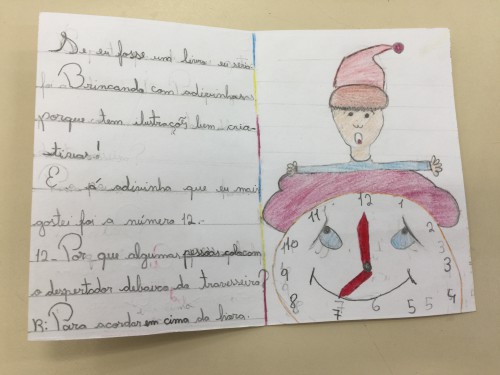 Se eu fosse um livro eu seria
Brincando com adivinhas
porque tem ilustraçõs bem cria-
tivas!
E a adivinha que eu mais
gostei foi a número 12.
12- Por que algumas pessoas colocam
o despertador debaixo do travesseiro?
R: Para acordar em cima da hora.
12
11 1
10 2
9 3
8 4
7 6 5 5